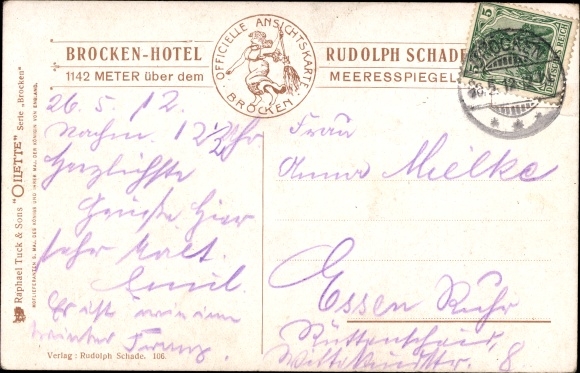 BROCKEN-HOTEL
1142 METER über dem
OFFICIELLE ANSICHTSKARTE
BROCKEN
RUDOLPH SCHADE
MEERESSPIEGEL
5
BROCKEN
Raphael Tuck & Sons "OILETTE" Serie „Brocken"
HOFLIEFERANTEN S. MAJ. DES KÖNIGS UND IHRER MAJ. DER KÖNIGIN VON ENGLAND.
26. 5. 12.
Nachm. 12 Uhr
Herzlichste
Grüße hier
sehr kalt.
Emil.
Es ist
Franz.
Frau
Anna Mielke
Essen Ruhr
Rüttenscheid,
Wittekindstr. 8
Verlag: Rudolph Schade. 106.